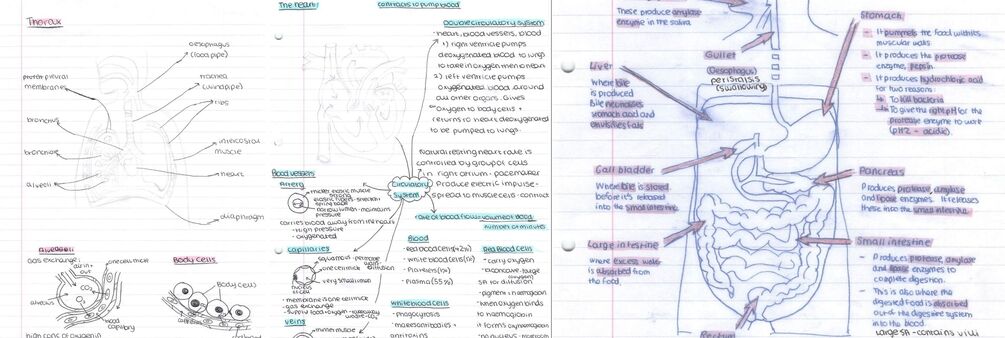 Thorax
oesophagus
(food pipe)
trachea
(windpipe)
ribs
intercostal
muscle
heart
diaphragm
pleural
membranes
bronchus
bronchiole
alveoli
Alveoli
Gas exchange:
air in +
out
one cell thick
alveolus
blood
capillary
high conc of oxygen in
Body cells
Body cells
capillaries
The heart
contracts to pump blood
Double circulatory system
- heart, blood vessels, blood
1) right ventricle pumps
deoxygenated blood to lungs
to take in oxygen then to heart
2) left ventricle pumps
oxygenated blood around
all other organs. Gives
oxygen to body cells +
returns to heart deoxygenated
to be pumped to lungs.
Natural resting heart rate is
controlled by group of cells
in right atrium - pacemaker
Produce electric impulse -
spread to muscle cells - contract
Circulatory
System
rate of blood flow = volume of blood
number of minutes
Blood vessels
Artery
carries blood away from heart
- high pressure
- oxygenated
capillaries
one cell thick
very small lumen
- membrane one cell thick
- gas exchange
veins
Blood
- red blood cells (42%)
- white blood cells (1%)
- platelets (1%)
- plasma (55%)
White blood cells
- phagocytosis
- makes antibodies +
antitoxins
Red Blood Cells
- carry oxygen
- biconcave - large
SA for diffusion
- when oxygen binds
to haemoglobin
it forms oxyhaemoglobin
These produce amylase
enzyme in the saliva
Gullet
(Oesophagus)
peristalsis
(swallowing)
Liver
where bile
is produced
Bile neutralises
stomach acid and
emulsifies fats
Gall bladder
Where bile is stored
before it's released
into the small intestine
Large intestine
where excess water
is absorbed from
the food.
Rectum
Stomach
- It pummels the food with its
muscular walls
- It produces the protease
enzyme, pepsin.
- It produces hydrochloric acid
for two reasons:
↳ To kill bacteria
↳ To give the right pH for the
protease enzyme to work
(pH2 - acidic)
Pancreas
Produces protease, amylase
and lipase enzymes. It releases
these into the small intestine.
Small intestine
- Produces protease, amylase
and lipase enzymes to
complete digestion.
- This is also where the
digested food is absorbed
out of the digestive system
into the blood.
Large SA - contains villi